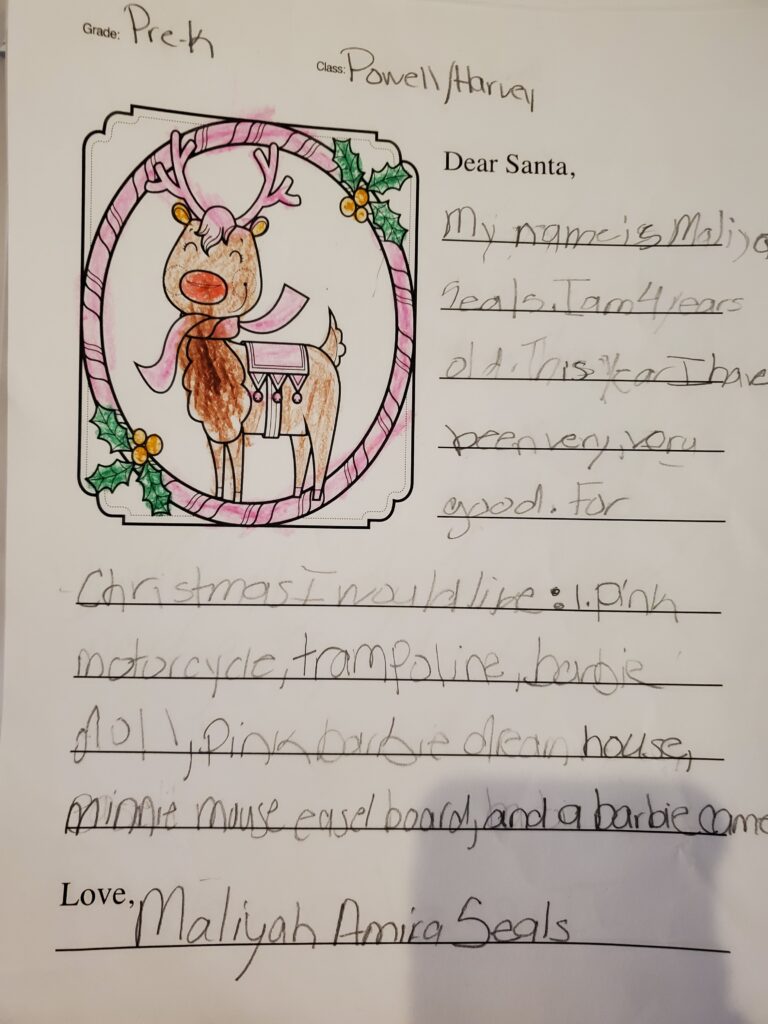 Grade: Pre-K
Class: Powell/Harvey
Dear Santa,
My name is Maliya
Seals. I am 4 years
old. This year I have
been very, very
good. For
Christmas I would like : 1. pink
motorcycle, trampoline, barbie
doll, pink barbie dream house,
minnie mouse easel board, and a barbie came
Love, Maliyah Amira Seals